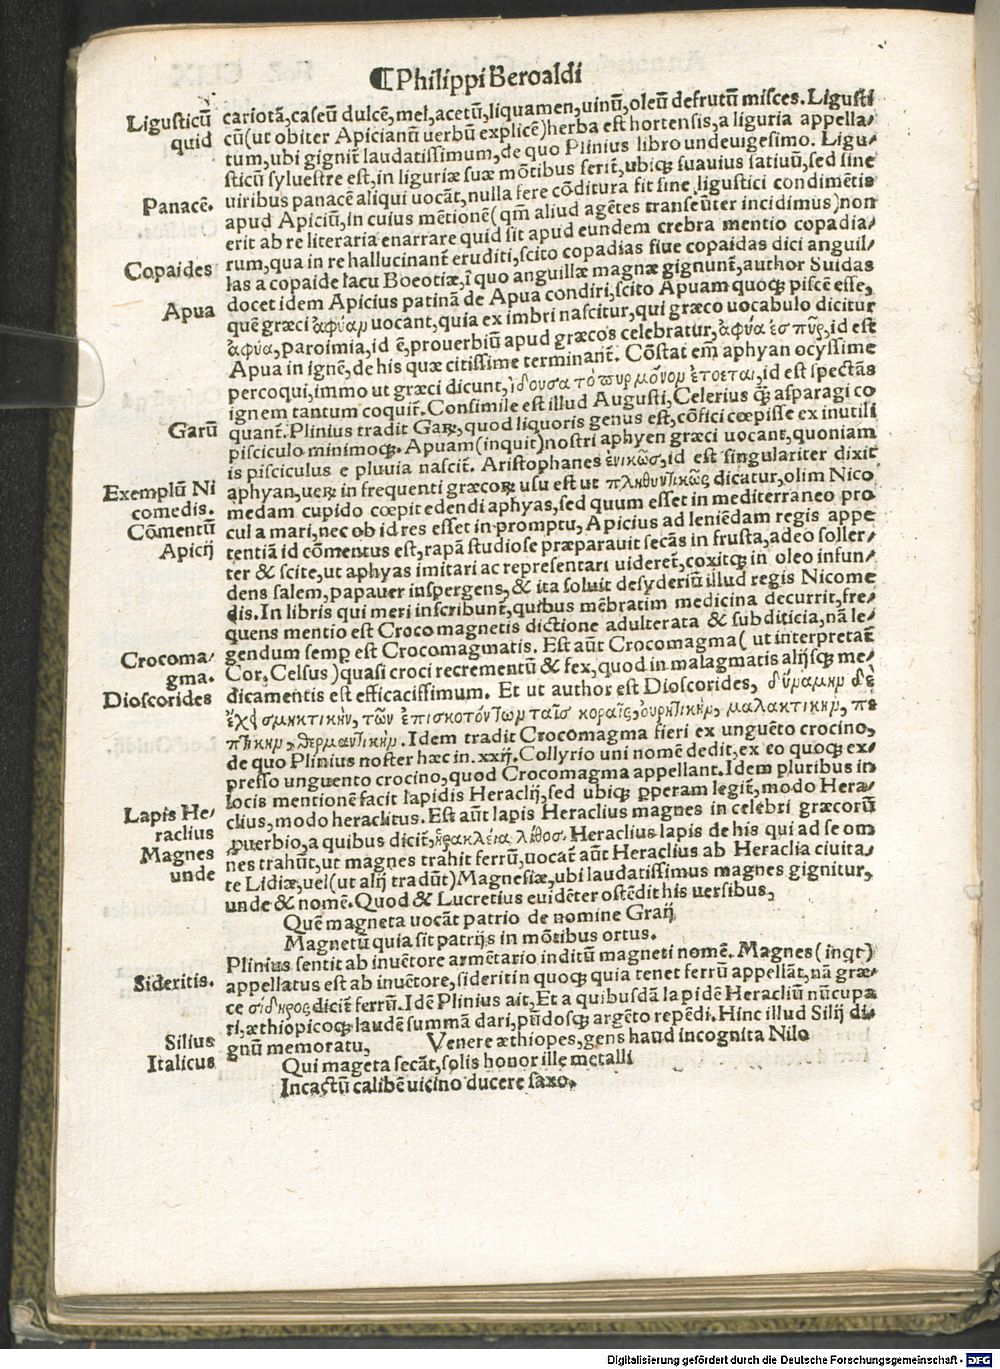 ¶Philippi Beroaldi
Ligusticū
quid
Panacē.
Copaides
Apua
Garū
Exemplū Ni
comedis.
Cōmentū
Apicij
Crocoma/
gma.
Dioscorides
Lapis He/
raclius
Magnes
unde
Sideritis.
Silius
Italicus
cariotā, caseū dulcē, mel, acetū, liquamen, uinū, oleū defrutū misces. Ligusti
cū (ut obiter Apicianū uerbū explicē) herba est hortensis, a liguria appella/
tum, ubi gignit̃ laudatissimum, de quo Plinius libro undeuigesimo. Ligu/
sticū syluestre est, in liguriæ suæ mōtibus serit̃, ubiqꝫ suauius satiuū, sed sine
uiribus panacē aliqui uocāt, nulla fere cōditura fit sine ligustici condimētis
apud Apiciū, in cuius mētionē (qm̄ aliud agētes transeūter incidimus) non
erit ab re literaria enarrare quid sit apud eundem crebra mentio copadia/
rum, qua in re hallucinant̃ eruditi, scito copadias siue copaidas dici anguil/
las a copaide lacu Boeotiæ, ī quo anguillæ magnæ gignunt̃, author Suidas
docet idem Apicius patinā de Apua condiri, scito Apuam quoqꝫ piscē esse,
quē græci ἀφύαμ uocant, quia ex imbri nascitur, qui græco uocabulo dicitur
ἀφύα, paroimia, id ē, prouerbiū apud græcos celebratur, ἀφύα ἐσ πῦρ, id est
Apua in ignē, de his quæ citissime terminant̃. Cōstat em̄ aphyan ocyssime
percoqui, immo ut græci dicunt, ἰδουσα τὸ πυρ μόνομ ἐτοεται, id est spectās
ignem tantum coquit̃. Consimile est illud Augusti, Celerius qꝫ̄ asparagi co
quant̃. Plinius tradit Garꝝ, quod liquoris genus est, cōfici cœpisse ex inutili
pisciculo minimoqꝫ. Apuam (inquit) nostri aphyen græci uocant, quoniam
is pisciculus e pluuia nascit̃. Aristophanes ἑνικῶσ, id est singulariter dixit
aphyan, ueꝝ in frequenti græcoꝝ usu est ut πληθυντικῶς dicatur, olim Nico
medam cupido cœpit edendi aphyas, sed quum esset in mediterraneo pro
cul a mari, nec ob id res esset in promptu, Apicius ad leniēdam regis appe
tentiā id cōmentus est, rapā studiose præparauit secās in frusta, adeo soller/
ter & scite, ut aphyas imitari ac representari uideret̃, coxitqꝫ in oleo infun/
dens salem, papauer inspergens, & ita soluit desyderiū illud regis Nicome
dis. In libris qui meri inscribunt̃, quibus mēbratim medicina decurrit, fre/
quens mentio est Crocomagnetis dictione adulterata & subditicia, nā le/
gendum semꝑ est Crocomagmatis. Est aūt Crocomagma (ut interpretat̃
Cor. Celsus) quasi croci recrementū & fex, quod in malagmatis alijsqꝫ me/
dicamentis est efficacissimum. Et ut author est Dioscorides, δύμαμιμ δὲ
ἔχει σμηκτικὴν, τῶν ἐπισκοτόντωμ ταῖσ κοραῖς, ουρητικὴμ, μαλακτικὴμ, πε
πτικημ, θερμαντικὴμ. Idem tradit Crocomagma fieri ex unguēto crocino,
de quo Plinius noster hæc in. xxij. Collyrio uni nomē dedit, ex eo quoqꝫ ex/
presso unguento crocino, quod Crocomagma appellant. Idem pluribus in
locis mentionē facit lapidis Heraclij, sed ubiqꝫ ꝑperam legit̃, modo Hera/
clius, modo heraclitus. Est aūt lapis Heraclius magnes in celebri græcorū
ꝓuerbio, a quibus dicit̃, ἡρακλεία λίθοσ. Heraclius lapis de his qui ad se om
nes trahūt, ut magnes trahit ferrū, uocat̃ aūt Heraclius ab Heraclia ciuita/
te Lidiæ, uel (ut alij tradūt) Magnesiæ, ubi laudatissimus magnes gignitur,
unde & nomē. Quod & Lucretius euidēter ostēdit his uersibus,
Quē magneta uocāt patrio de nomine Graij
Magnetū quia sit patrijs in mōtibus ortus.
Plinius sentit ab inuētore armētario inditū magneti nomē. Magnes (inqt)
appellatus est ab inuētore, sideritin quoqꝫ quia tenet ferrū appellāt, nā græ/
ce σίδηρος dicit̃ ferrū. Idē Plinius ait, Et a quibusdā lapidē Heracliū nūcupa
ri, æthiopicoqꝫ laudē summā dari, pūdosqꝫ argēto repēdi. Hinc illud Silij di/
gnū memoratu, Venere æthiopes, gens haud incognita Nilo
Qui mageta secāt, solis honor ille metalli
Incactū calibē uicino ducere saxo.
Digitalisierung gefördert durch die Deutsche Forschungsgemeinschaft - DFG